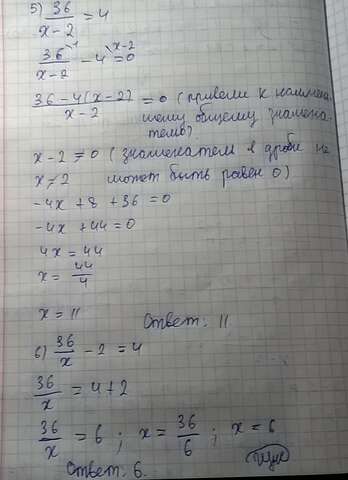 5) 36/(x-2) = 4
36\¹/(x-2) - 4\ˣ⁻² = 0
(36-4(x-2))/(x-2) = 0 (привели к наимень
шему общему знамена-
телю)
x-2 ≠ 0 (знаменатель в дроби не
x ≠ 2 может быть равен 0)
-4x + 8 + 36 = 0
-4x + 44 = 0
4x = 44
x = 44/4
x = 11
Ответ: 11
6) 36/x - 2 = 4
36/x = 4+2
36/x = 6 ; x = 36/6 ; x = 6
Ответ: 6.